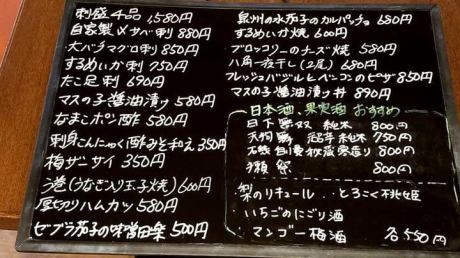 刺盛4品 1,580円
自家製〆サバ刺 880円
大バチマグロ刺 850円
するめいか刺 750円
たこ足刺 690円
マスの子醤油漬け 580円
なまこポン酢 580円
刺身こんにゃく酢みそ和え 350円
梅ザーサイ 350円
う巻(うなぎ入り玉子焼) 600円
厚切りハムカツ 580円
ゼブラ茄子の味噌田楽 500円
泉州の水茄子のカルパッチョ 680円
するめいか焼 600円
ブロッコリーのチーズ焼 580円
八角一夜干し(2尾) 680円
フレッシュバジルとベーコンのピザ 850円
マスの子醤油漬け丼 890円
日本酒、果実酒 おすすめ
日下無双 純米 800円
天狗舞 純米 750円
石鎚 自慢 秘蔵寒造り 800円
獺祭 800円
梨のリキュール とろこく桃姫
いちごのにごり酒
マンゴー梅酒 各550円